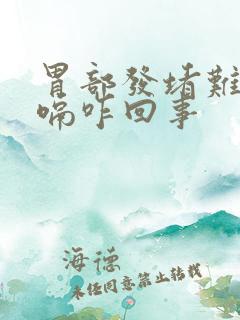 胃部發堵難
嗝咋回事
海德
未経同意禁止转载